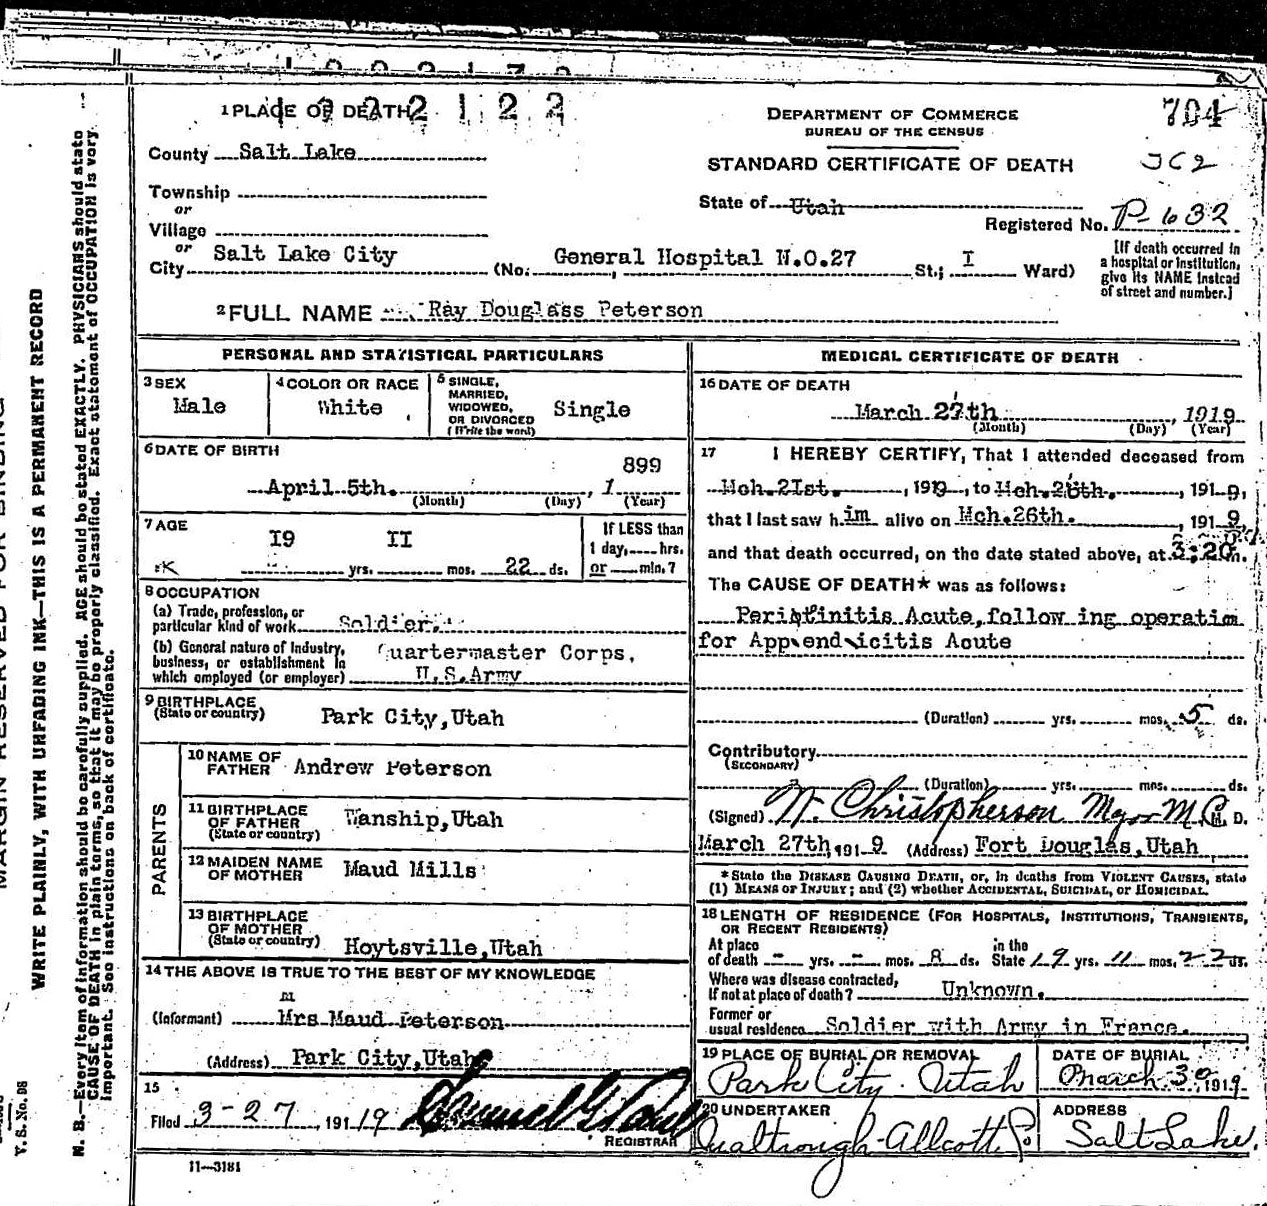 1 PLACE OF DEATH
County Salt Lake
Township
or
Village
or
City Salt Lake City (No. General Hospital N.O.27 St.; I Ward)
DEPARTMENT OF COMMERCE
BUREAU OF THE CENSUS
STANDARD CERTIFICATE OF DEATH
State of Utah
704
Registered No. P-632
[If death occurred in
a hospital or institution,
give its NAME instead
of street and number.]
2 FULL NAME Ray Douglass Peterson
PERSONAL AND STATISTICAL PARTICULARS
3 SEX
Male
4 COLOR OR RACE
White
5 SINGLE,
MARRIED,
WIDOWED,
OR DIVORCED
(Write the word)
Single
6 DATE OF BIRTH
April 5th. , 1 899
(Month) (Day) (Year)
7 AGE
I9 yrs. II mos. 22 ds.
If LESS than
1 day, hrs.
or min.?
8 OCCUPATION
(a) Trade, profession, or
particular kind of work Soldier.
(b) General nature of Industry,
business, or establishment in
which employed (or employer)
Quartermaster Corps,
U.S.Army
9 BIRTHPLACE
(State or country) Park City,Utah
PARENTS
10 NAME OF
FATHER Andrew Peterson
11 BIRTHPLACE
OF FATHER
(State or country) Wanship,Utah
12 MAIDEN NAME
OF MOTHER Maud Mills
13 BIRTHPLACE
OF MOTHER
(State or country) Hoytsville,Utah
14 THE ABOVE IS TRUE TO THE BEST OF MY KNOWLEDGE
(Informant) Mrs Maud Peterson
(Address) Park City,Utah
15
Filed 3-27, 191 19
REGISTRAR
11—3181
MEDICAL CERTIFICATE OF DEATH
16 DATE OF DEATH
March 27th , 1919
(Month) (Day) (Year)
17 I HEREBY CERTIFY, That I attended deceased from
Mch.2Ist. , 1919, to Mch.26th. , 191 9,
that I last saw h im alive on Mch.26th. , 191 9,
and that death occurred, on the date stated above, at 3:20 m.
The CAUSE OF DEATH* was as follows:
Peritinitis Acute,follow ing operation
for Appendicitis Acute
(Duration) yrs. mos. 5 ds.
Contributory
(SECONDARY)
(Duration) yrs. mos. ds.
(Signed) N. Christopherson Major M.C. M. D.
March 27th, 191 9 (Address) Fort Douglas,Utah
*State the DISEASE CAUSING DEATH, or, in deaths from VIOLENT CAUSES, state
(1) MEANS OF INJURY; and (2) whether ACCIDENTAL, SUICIDAL, or HOMICIDAL.
18 LENGTH OF RESIDENCE (FOR HOSPITALS, INSTITUTIONS, TRANSIENTS,
OR RECENT RESIDENTS)
At place
of death - yrs. - mos. 8 ds.
In the
State 19 yrs. 11 mos. 22 ds.
Where was disease contracted,
if not at place of death? Unknown.
Former or
usual residence Soldier with Army in France.
19 PLACE OF BURIAL OR REMOVAL
Park City. Utah
DATE OF BURIAL
March 30 1919
20 UNDERTAKER
Qualtrough-Allcott Co
ADDRESS
Salt Lake.
MARGIN RESERVED FOR BINDING
WRITE PLAINLY, WITH UNFADING INK—THIS IS A PERMANENT RECORD
N. B.—Every item of information should be carefully supplied. AGE should be stated EXACTLY. PHYSICIANS should state
CAUSE OF DEATH in plain terms, so that it may be properly classified. Exact statement of OCCUPATION is very
important. See instructions on back of certificate.
V. S. No. 98